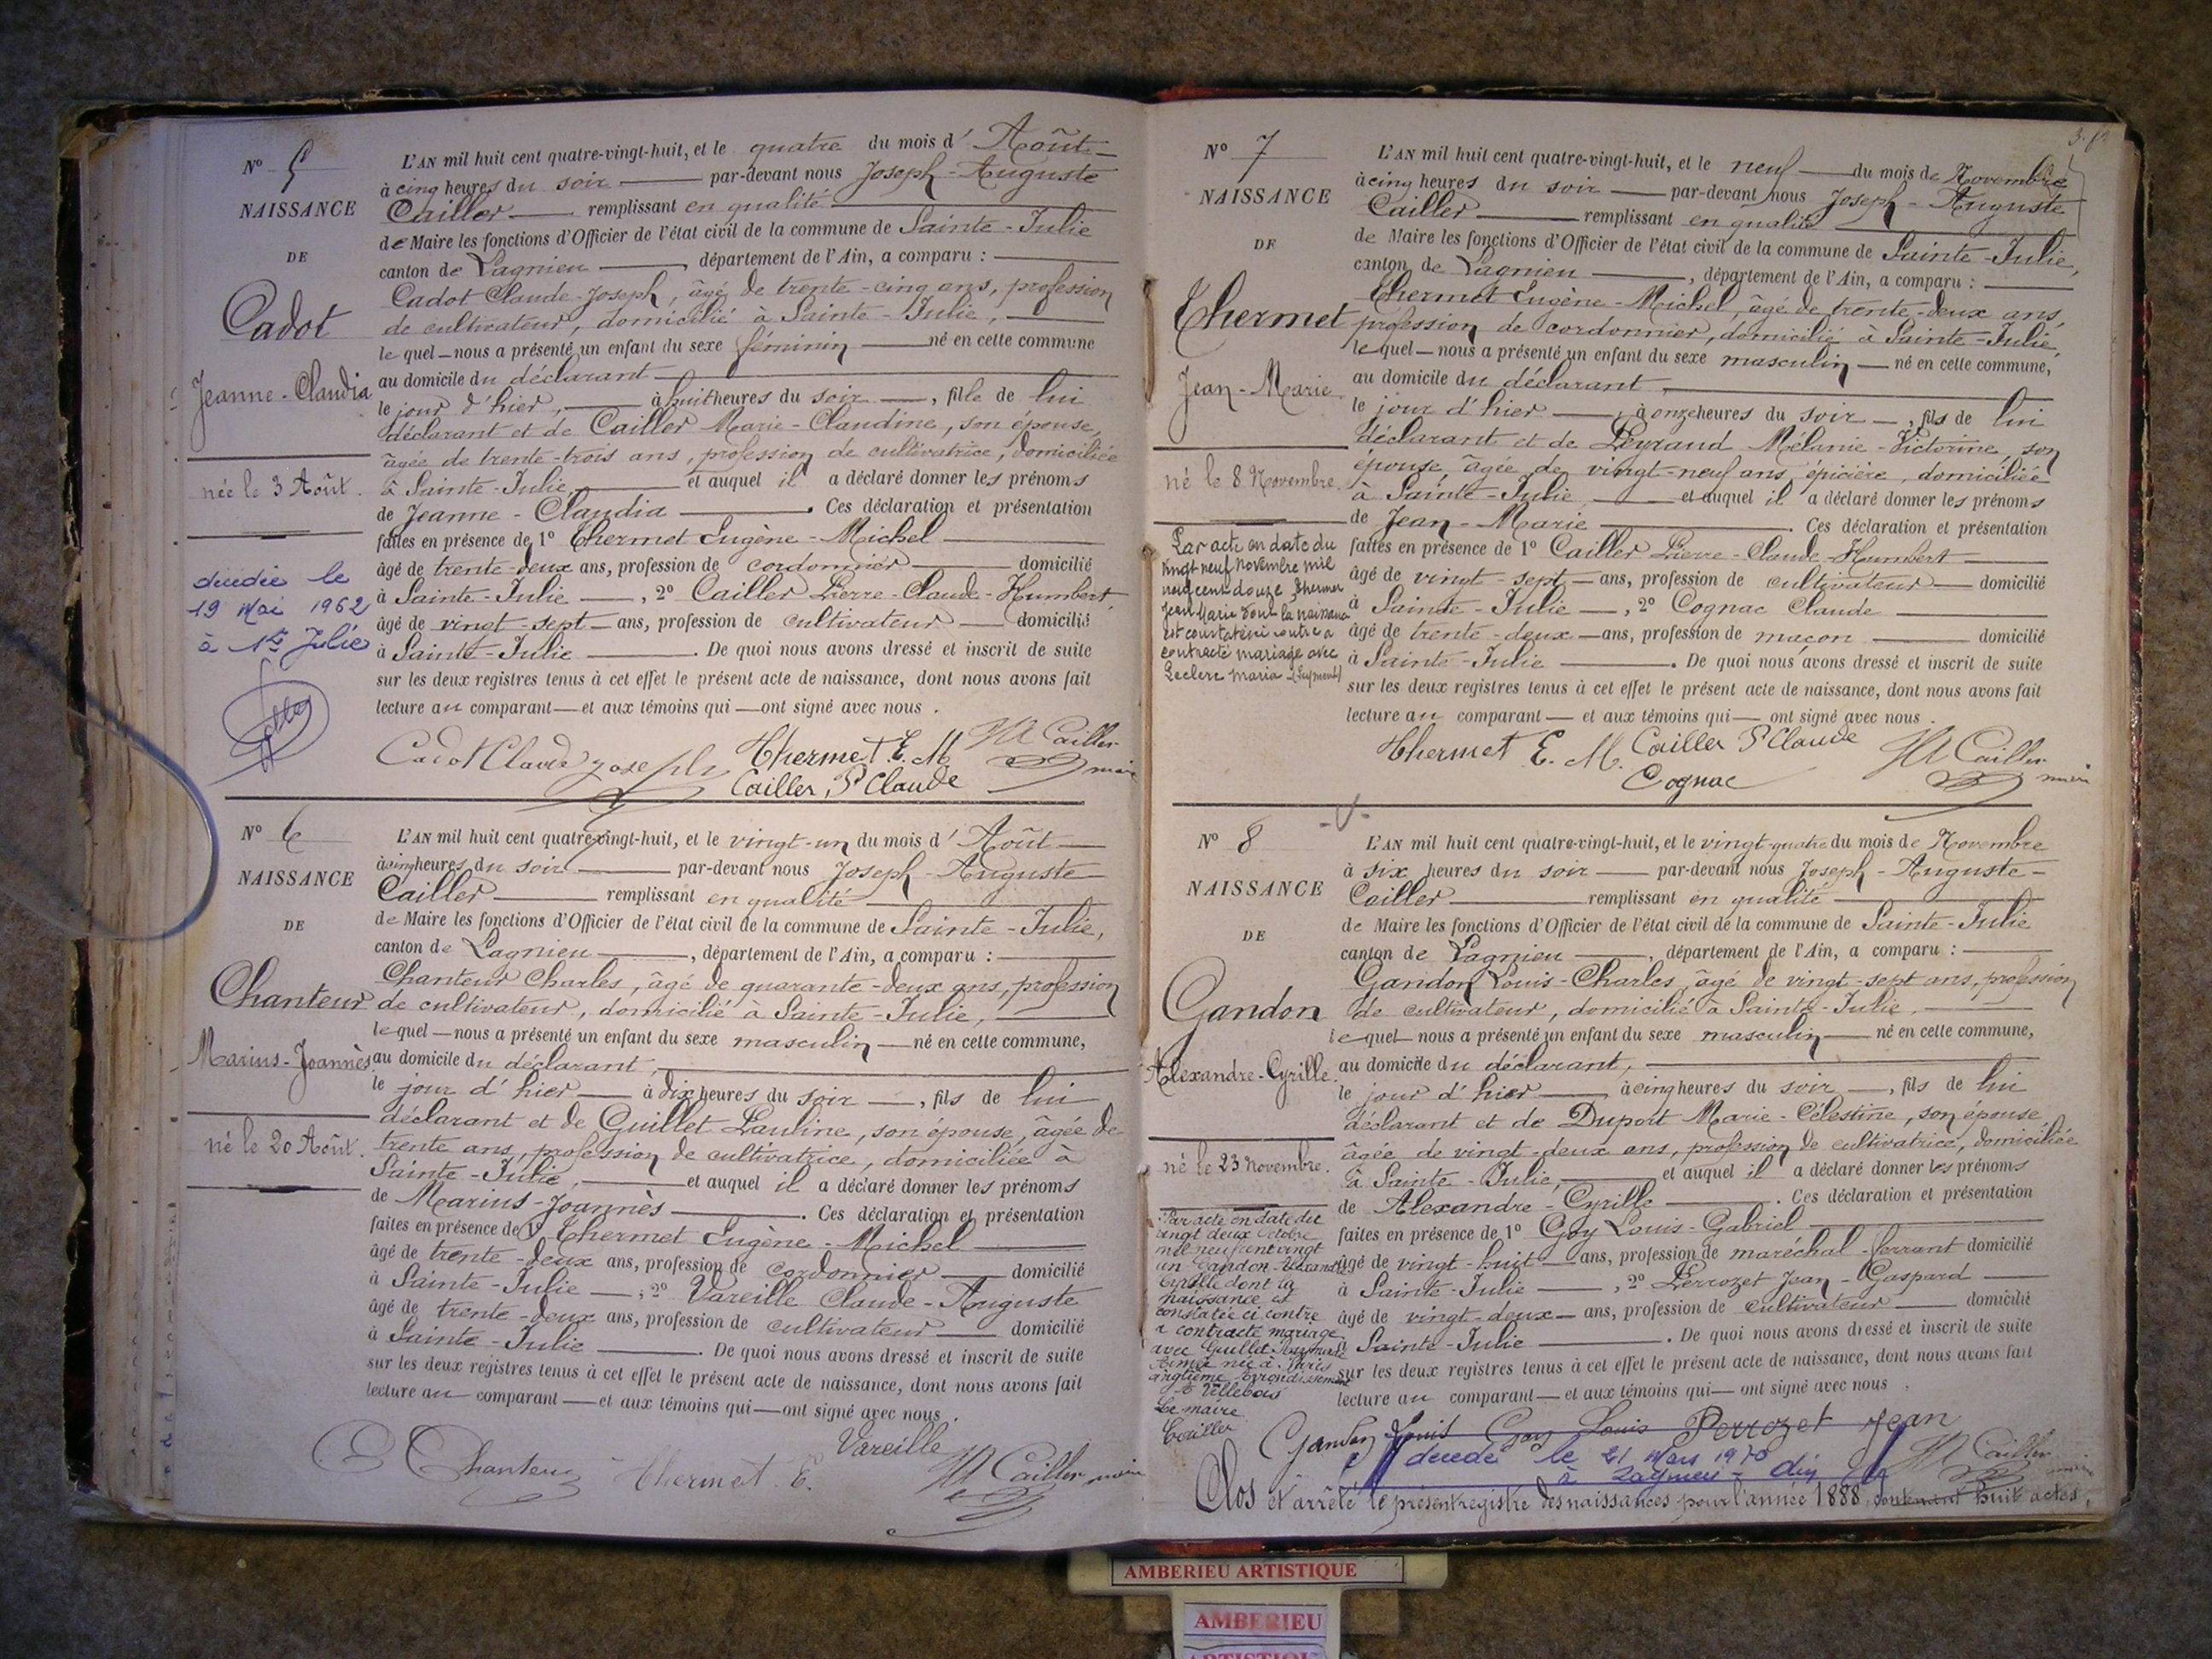 N° 5
NAISSANCE
DE
Cadot
Jeanne-Claudia
née le 3 Août.
décédée le
19 Mai 1962
à Ste Julie
L'AN mil huit cent quatre-vingt-huit, et le quatre du mois d'Août
à cinq heures du soir par-devant nous Joseph-Auguste
Cailler remplissant en qualité
de Maire les fonctions d'Officier de l'état civil de la commune de Sainte-Julie
canton de Lagnieu, département de l'Ain, a comparu :
Cadot Claude-Joseph, âgé de trente-cinq ans, profession
de cultivateur, domicilié à Sainte-Julie,
lequel nous a présenté un enfant du sexe féminin né en cette commune
au domicile du déclarant
le jour d'hier, à huit heures du soir, fille de lui
déclarant et de Cailler Marie-Claudine, son épouse,
âgée de trente-trois ans, profession de cultivatrice, domiciliée
à Sainte-Julie, et auquel il a déclaré donner les prénoms
de Jeanne-Claudia. Ces déclaration et présentation
faites en présence de 1° Thermet Eugène-Michel
âgé de trente-deux ans, profession de cordonnier domicilié
à Sainte-Julie, 2° Cailler Pierre-Claude-Humbert,
âgé de vingt-sept ans, profession de cultivateur domicilié
à Sainte-Julie. De quoi nous avons dressé et inscrit de suite
sur les deux registres tenus à cet effet le présent acte de naissance, dont nous avons fait
lecture au comparant et aux témoins qui ont signé avec nous.
Cadot Claude joseph Thermet E. M. Cailler
Cailler P Claude maire
N° 6
NAISSANCE
DE
Chanteur
Marius-Joannès
né le 20 Août.
L'AN mil huit cent quatre-vingt-huit, et le vingt-un du mois d'Août
à cinq heures du soir par-devant nous Joseph-Auguste
Cailler remplissant en qualité
de Maire les fonctions d'Officier de l'état civil de la commune de Sainte-Julie,
canton de Lagnieu, département de l'Ain, a comparu :
Chanteur Charles, âgé de quarante-deux ans, profession
de cultivateur, domicilié à Sainte-Julie,
lequel nous a présenté un enfant du sexe masculin né en cette commune,
au domicile du déclarant,
le jour d'hier à dix heures du soir, fils de lui
déclarant et de Guillet Pauline, son épouse, âgée de
trente ans, profession de cultivatrice, domiciliée à
Sainte-Julie, et auquel il a déclaré donner les prénoms
de Marius-Joannès. Ces déclaration et présentation
faites en présence de 1° Thermet Eugène-Michel
âgé de trente-deux ans, profession de cordonnier domicilié
à Sainte-Julie, 2° Vareille Claude-Auguste
âgé de trente-deux ans, profession de cultivateur domicilié
à Sainte-Julie. De quoi nous avons dressé et inscrit de suite
sur les deux registres tenus à cet effet le présent acte de naissance, dont nous avons fait
lecture au comparant et aux témoins qui ont signé avec nous.
Vareille
Chanteur Thermet E. Cailler maire
N° 7
NAISSANCE
DE
Thermet
Jean-Marie
né le 8 Novembre.
Par acte en date du
vingt neuf novembre mil
neuf cent douze, Thermet
Jean Marie dont la naissance
est constatée ci contre a
contracté mariage avec
Leclerc Maria
L'AN mil huit cent quatre-vingt-huit, et le neuf du mois de Novembre
à cinq heures du soir par-devant nous Joseph-Auguste
Cailler remplissant en qualité
de Maire les fonctions d'Officier de l'état civil de la commune de Sainte-Julie,
canton de Lagnieu, département de l'Ain, a comparu :
Thermet Eugène-Michel, âgé de trente-deux ans,
profession de cordonnier, domicilié à Sainte-Julie,
lequel nous a présenté un enfant du sexe masculin né en cette commune,
au domicile du déclarant,
le jour d'hier, à onze heures du soir, fils de lui
déclarant et de Peyraud Mélanie-Victorine, son
épouse, âgée de vingt-neuf ans, épicière, domiciliée
à Sainte-Julie, et auquel il a déclaré donner les prénoms
de Jean-Marie. Ces déclaration et présentation
faites en présence de 1° Cailler Pierre-Claude-Humbert
âgé de vingt-sept ans, profession de cultivateur domicilié
à Sainte-Julie, 2° Cognac Claude
âgé de trente-deux ans, profession de maçon domicilié
à Sainte-Julie. De quoi nous avons dressé et inscrit de suite
sur les deux registres tenus à cet effet le présent acte de naissance, dont nous avons fait
lecture au comparant et aux témoins qui ont signé avec nous.
Thermet E. M. Cailler P Claude Cailler
Cognac maire
N° 8
NAISSANCE
DE
Gandon
Alexandre-Cyrille.
né le 23 novembre.
Par acte en date du
vingt deux Octobre
mil neuf cent vingt
un Gandon Alexandre
Cyrille dont la
naissance est
constatée ci contre
a contracté mariage
avec Guillet
Aimée née à Paris
arrondissement
à Villebois
Le maire
Cailler
L'AN mil huit cent quatre-vingt-huit, et le vingt-quatre du mois de Novembre
à six heures du soir par-devant nous Joseph-Auguste
Cailler remplissant en qualité
de Maire les fonctions d'Officier de l'état civil de la commune de Sainte-Julie
canton de Lagnieu, département de l'Ain, a comparu :
Gandon Louis-Charles, âgé de vingt-sept ans, profession
de cultivateur, domicilié à Sainte-Julie,
lequel nous a présenté un enfant du sexe masculin né en cette commune,
au domicile du déclarant,
le jour d'hier, à cinq heures du soir, fils de lui
déclarant et de Duport Marie-Célestine, son épouse
âgée de vingt-deux ans, profession de cultivatrice, domiciliée
à Sainte-Julie, et auquel il a déclaré donner les prénoms
de Alexandre-Cyrille. Ces déclaration et présentation
faites en présence de 1° Goy Louis-Gabriel
âgé de vingt-huit ans, profession de maréchal-ferrant domicilié
à Sainte-Julie, 2° Perrozet Jean-Gaspard
âgé de vingt-deux ans, profession de cultivateur domicilié
à Sainte-Julie. De quoi nous avons dressé et inscrit de suite
sur les deux registres tenus à cet effet le présent acte de naissance, dont nous avons fait
lecture au comparant et aux témoins qui ont signé avec nous.
Gandon Louis Goy Louis Perrozet Jean
décédé le 21 Mars 1970 Cailler
à Lagnieu maire
Clos et arrêté le présent registre des naissances pour l'année 1888, contenant huit actes,
AMBERIEU ARTISTIQUE
AMBERIEU
ARTISTIQUE